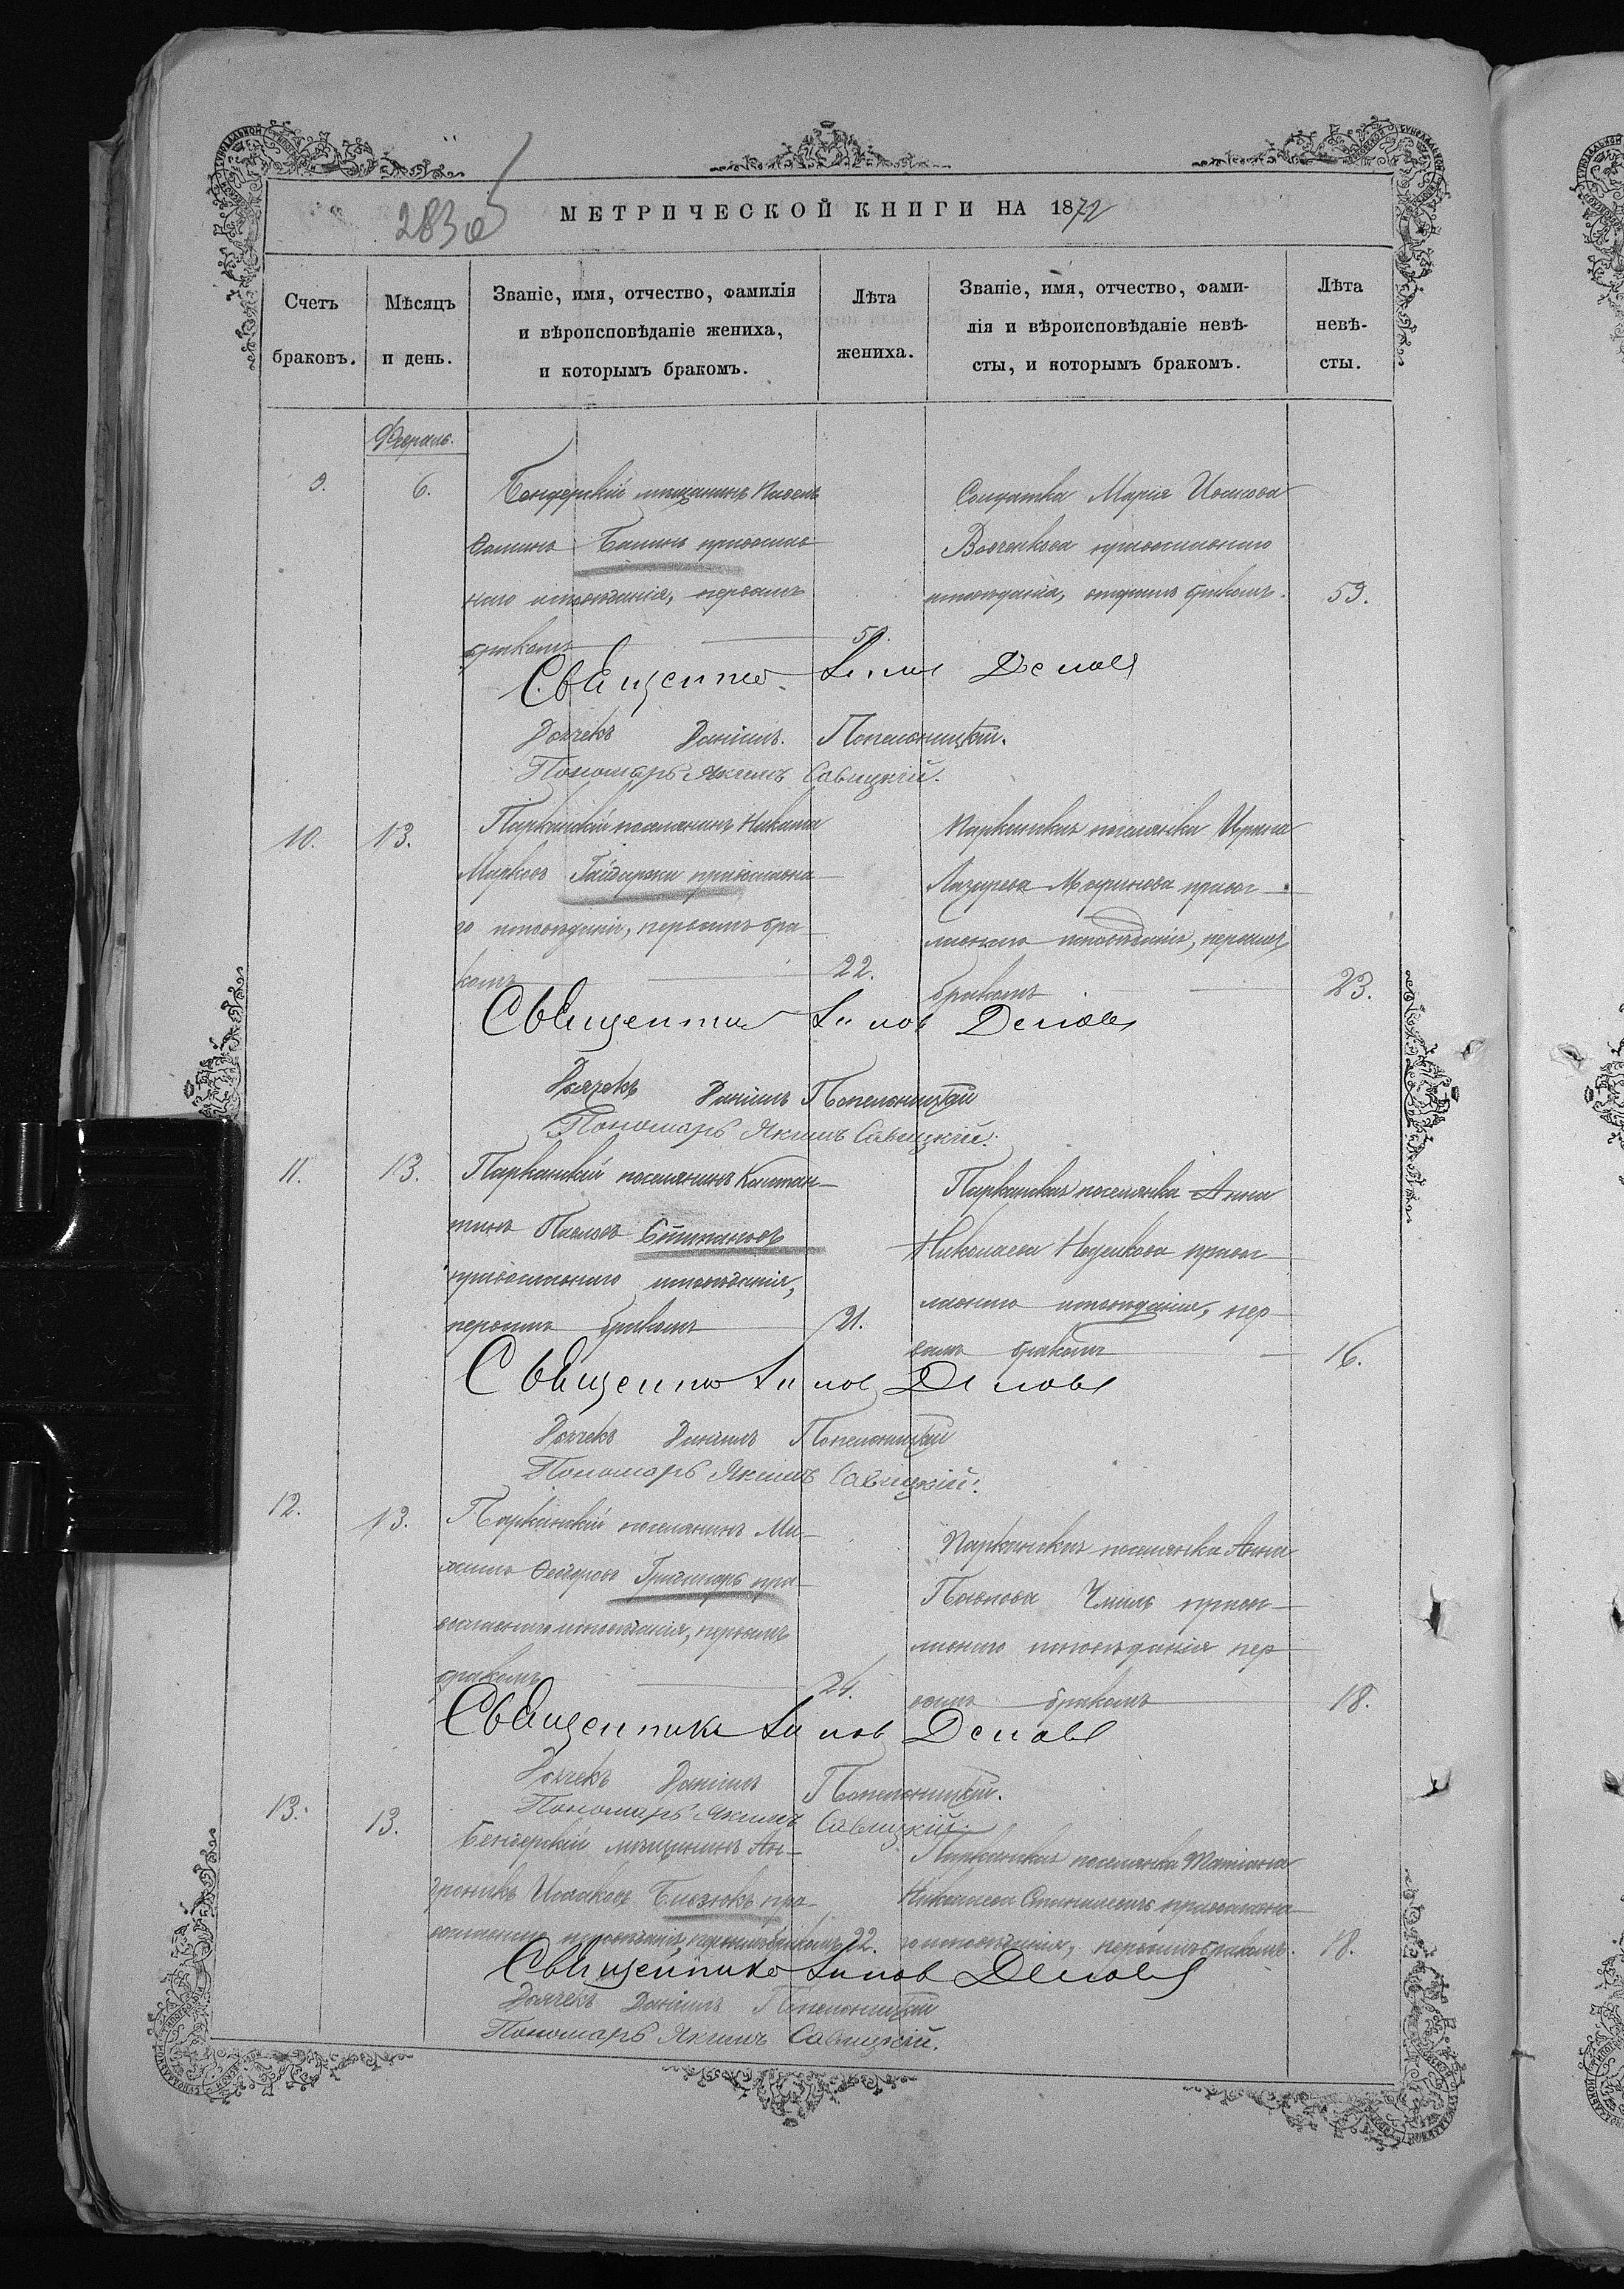 283 об
МЕТРИЧЕСКОЙ КНИГИ НА 1872
Счетъ браковъ.
Мѣсяцъ и день.
Званіе, имя, отчество, фамилія
и вѣроисповѣданіе жениха,
и которымъ бракомъ.
Лѣта жениха.
Званіе, имя, отчество, фами-
лія и вѣроисповѣданіе невѣ-
сты, и которымъ бракомъ.
Лѣта невѣ-
сты.
Февраль.
9.
6.
Бендерскій мѣщанинъ
православ-
наго исповѣданія, первымъ
бракомъ
Солдатка Марія
православнаго
исповѣданія, вторымъ бракомъ.
59.
Священникъ
Дьячекъ Даніилъ Попельницкій.
Пономарь Якимъ Савицкій.
10.
13.
Парканскій поселянинъ Никита
Марковъ Гайдаржи православна-
го исповѣданія, первымъ бра-
комъ
22.
Парканская поселянка Ирина
Лазарева правос-
лавнаго исповѣданія, первымъ
бракомъ
23.
Священникъ
Дьячекъ Даніилъ Попельницкій
Пономарь Якимъ Савицкій.
11.
13.
Парканскій поселянинъ Констан-
тинъ Павловъ
православнаго исповѣданія,
первымъ бракомъ
21.
Парканская поселянка Анна
Николаева Неделкова правос-
лавнаго исповѣданія, пер-
вымъ бракомъ
16.
Священникъ
Дьячекъ Даніилъ Попельницкій
Пономарь Якимъ Савицкій.
12.
13.
Парканскій поселянинъ Ми-
хаилъ Федоровъ пра-
вославнаго исповѣданія, первымъ
бракомъ
Парканская поселянка Анна
Павлова Чмиль правос-
лавнаго исповѣданія пер-
вымъ бракомъ
18.
Священникъ
Дьячекъ Даніилъ Попельницкій.
Пономарь Якимъ Савицкій.
13.
13.
Бендерскій мѣщанинъ Ан-
дроникъ пра-
вославнаго исповѣданія, первымъ бракомъ
22.
Парканская поселянка Татіана
Николаева православна-
го исповѣданія, первымъ бракомъ.
18.
Священникъ
Дьячекъ Даніилъ Попельницкій
Пономарь Якимъ Савицкій.